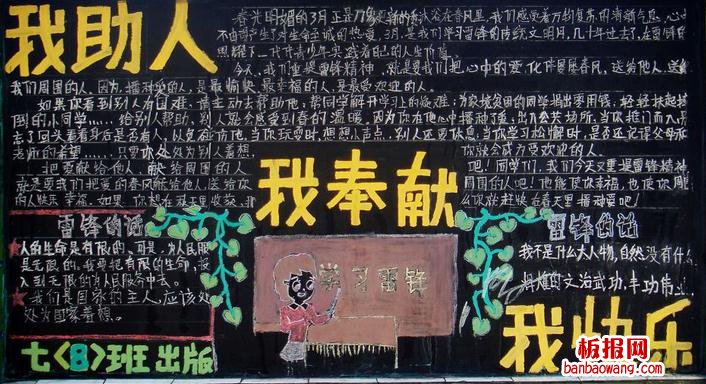 我助人
春光明媚的3月正是万象更新的
在春风里，我们感受着万物复苏的清新气息，心
3月，是我们学习雷锋的传统文明月，几十年过去了，在雷锋的
一代代青少年实践着自己的人生价值。
今天，我们重提雷锋精神，就是要我们把心中的爱，化作暖暖春风，送给他人，送给
我们周围的人。因为，播种爱的人，是最愉快、最幸福的人，是最受欢迎的人。
如果你看到别人有困难，请主动去帮助他；帮同学解开学习上的疑难；为家境贫困的同学捐出零用钱；轻轻扶起摔
倒的小同学……给别人帮助，别人就会感受到春的温暖，因为你在他心中播种了爱；出入公共场所，当你推门而入，是
否忘了回头看看身后是否有人，以免碰伤他，当你玩耍时，想想小点声，别人还要休息；当你学习松懈时，是否还记得父母和
老师的希望……只要你处处为别人着想，
你就会成为受欢迎的人。
把奉献给他人，献给周围的人
吧！同学们，我们今天又重提雷锋精神
就是要我们把爱的春风献给他人，送给
周围的人吧！他能使你幸福，也使你周围
的人快乐、幸福。如果，你想在秋天里收获，那
么你就赶快在春天里播种爱吧！
我奉献
雷锋的话
人的生命是有限的，可是，为人民服
是无限的，我要把有限的生命，投
入到无限的为人民服务中去。
我们是国家的主人，应该处
处为国家着想。
七〈8〉班出版
学习雷锋
雷锋的话
我不是什么大人物，自然没有什么
辉煌的文治武功，丰功伟
我快乐
板报网
banbaowang.com